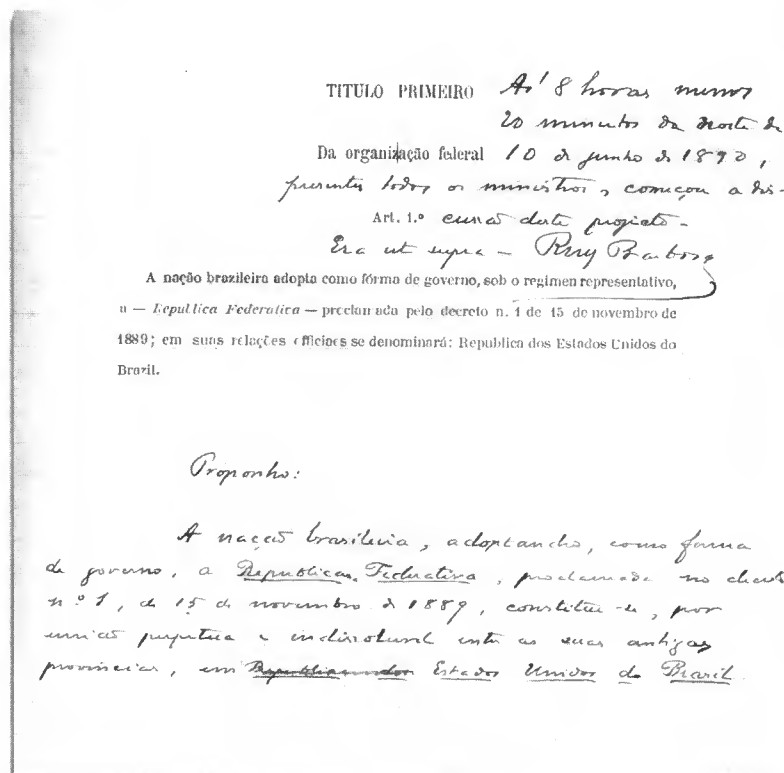 TITULO PRIMEIRO As' 8 horas menos
20 minutos da noite de
Da organização federal 10 de junho de 1890,
presentes todos os ministros, começou a dis-
Art. 1.º cussão deste projecto-
Era ut supra - Ruy Barbosa
A nação brazileira adopta como fórma de governo, sob o regimen representativo,
a — Republica Federativa — proclamada pelo decreto n. 1 de 15 de novembro de
1889; em suas relações officiaes se denominará: Republica dos Estados Unidos do
Brazil.
Proponho:
A nação brasileira, adoptando, como forma
de governo, a Republica Federativa, proclamada no decreto
nº 1, de 15 de novembro de 1889, constitue-se, por
união perpetua e indissoluvel entre as suas antigas
provincias, em Estados Unidos do Brasil.